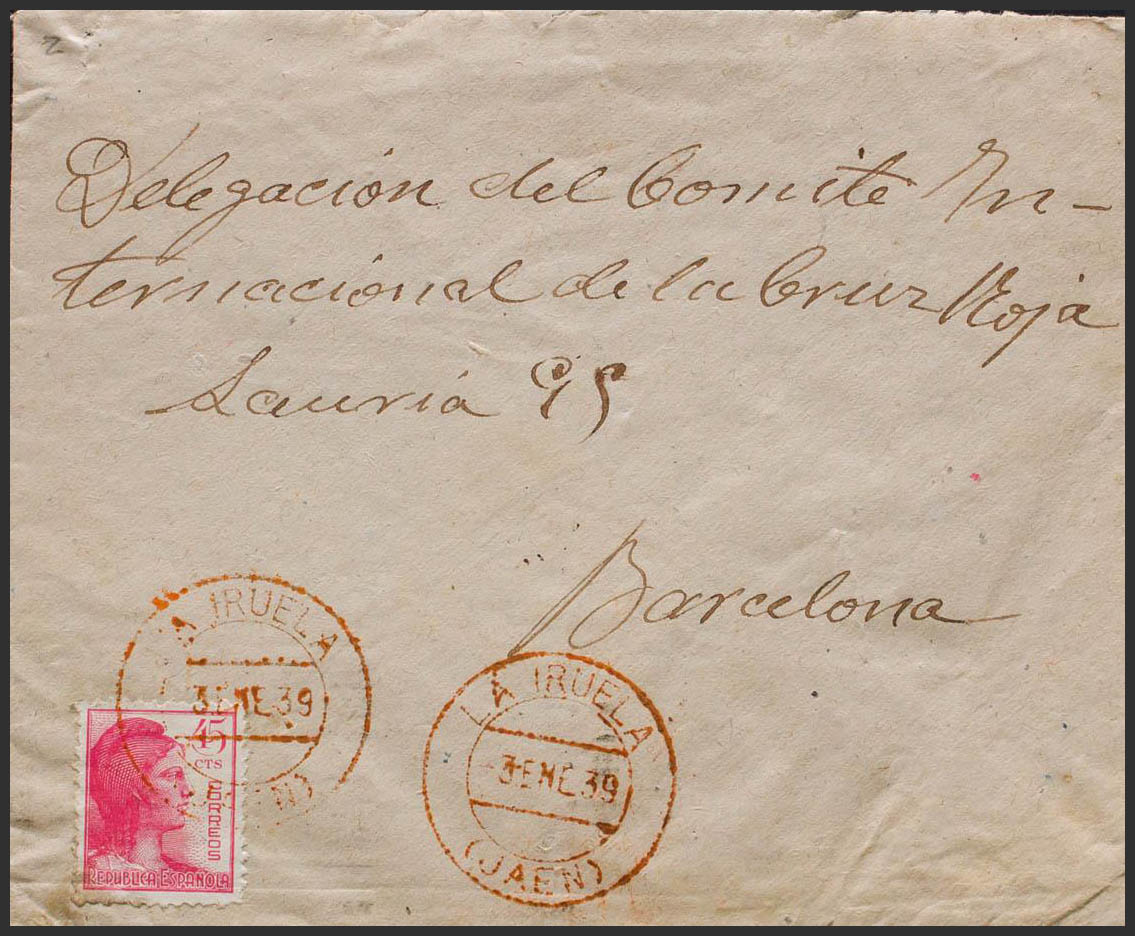 Delegación del Comite In-
ternacional de la Cruz Roja
Lauria 95
Barcelona
LA IRUELA
3 ENE 39
(JAEN)
45
CTS
CORREOS
REPUBLICA ESPAÑOLA
LA IRUELA
-3 ENE 39
(JAEN)